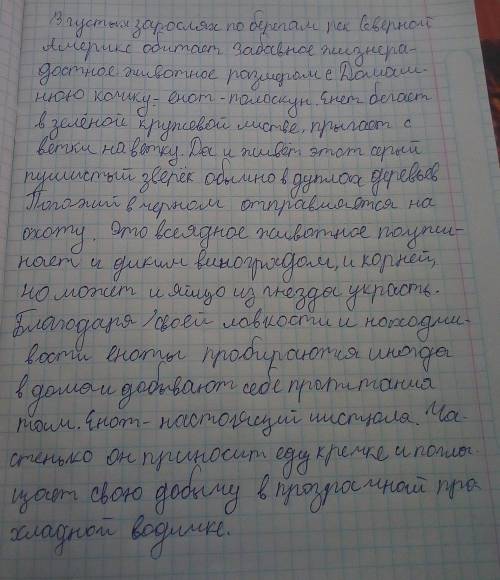 В густых зарослях по берегам рек Северной
Америке обитает забавное жизнера-
достное животное размером с Домаш-
нюю кошку - енот - полоскун. Енот бегает
в зелёной кружевой листве, прыгает с
ветки на ветку. Да и живёт этот серый
пушистый зверёк обычно в дуплах деревьев
в черном отправляется на
охоту. Это всеядное животное
и диким виноградом, и корней,
но может и яйцо из гнезда украсть.
Благодаря своей ловкости и находчи-
вости еноты пробираются иногда
в дома и добывают себе пропитания
там. Енот - настоящий чистюля. Ча-
стенько он приносит еду к речке и погло-
щает свою добычу в прозрачной про
хладной водичке.